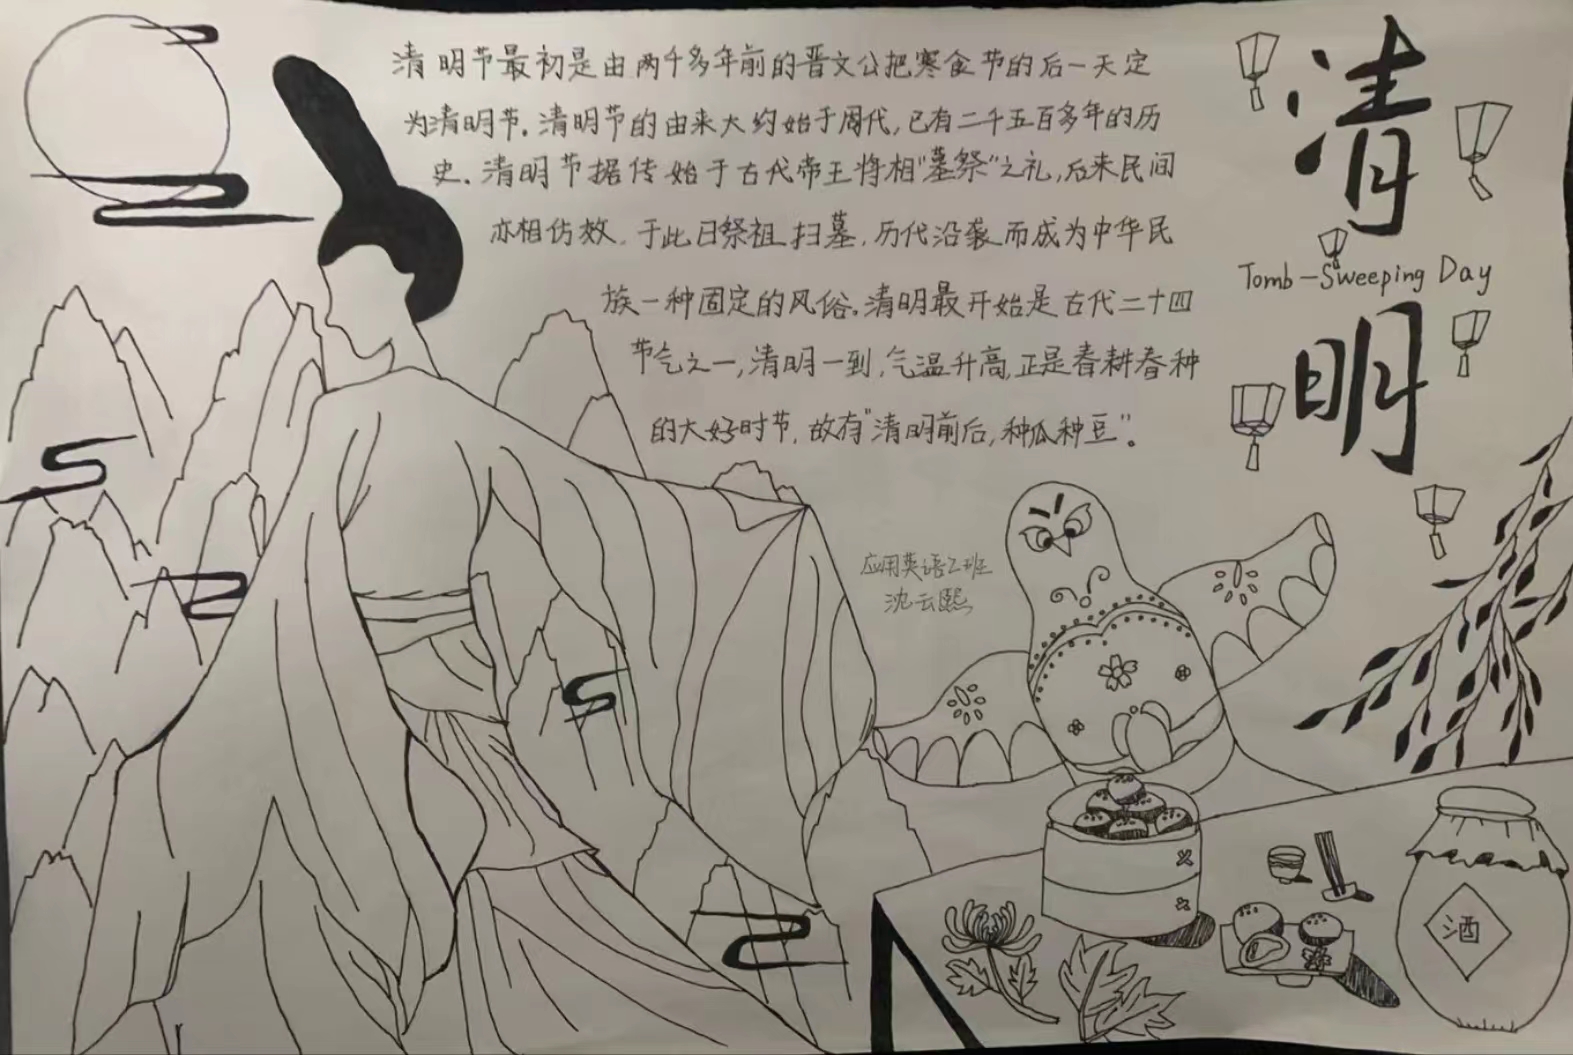 清明节最初是由两千多年前的晋文公把寒食节的后一天定
为清明节.清明节的由来大约始于周代,已有二千五百多年的历
史.清明节据传始于古代帝王将相"墓祭"之礼,后来民间
亦相仿效.于此日祭祖扫墓,历代沿袭而成为中华民
族一种固定的风俗.清明最开始是古代二十四
节气之一,清明一到,气温升高,正是春耕春种
的大好时节,故有"清明前后,种瓜种豆"。
清
Tomb-Sweeping Day
明
应用英语2班
沈云熙
酒